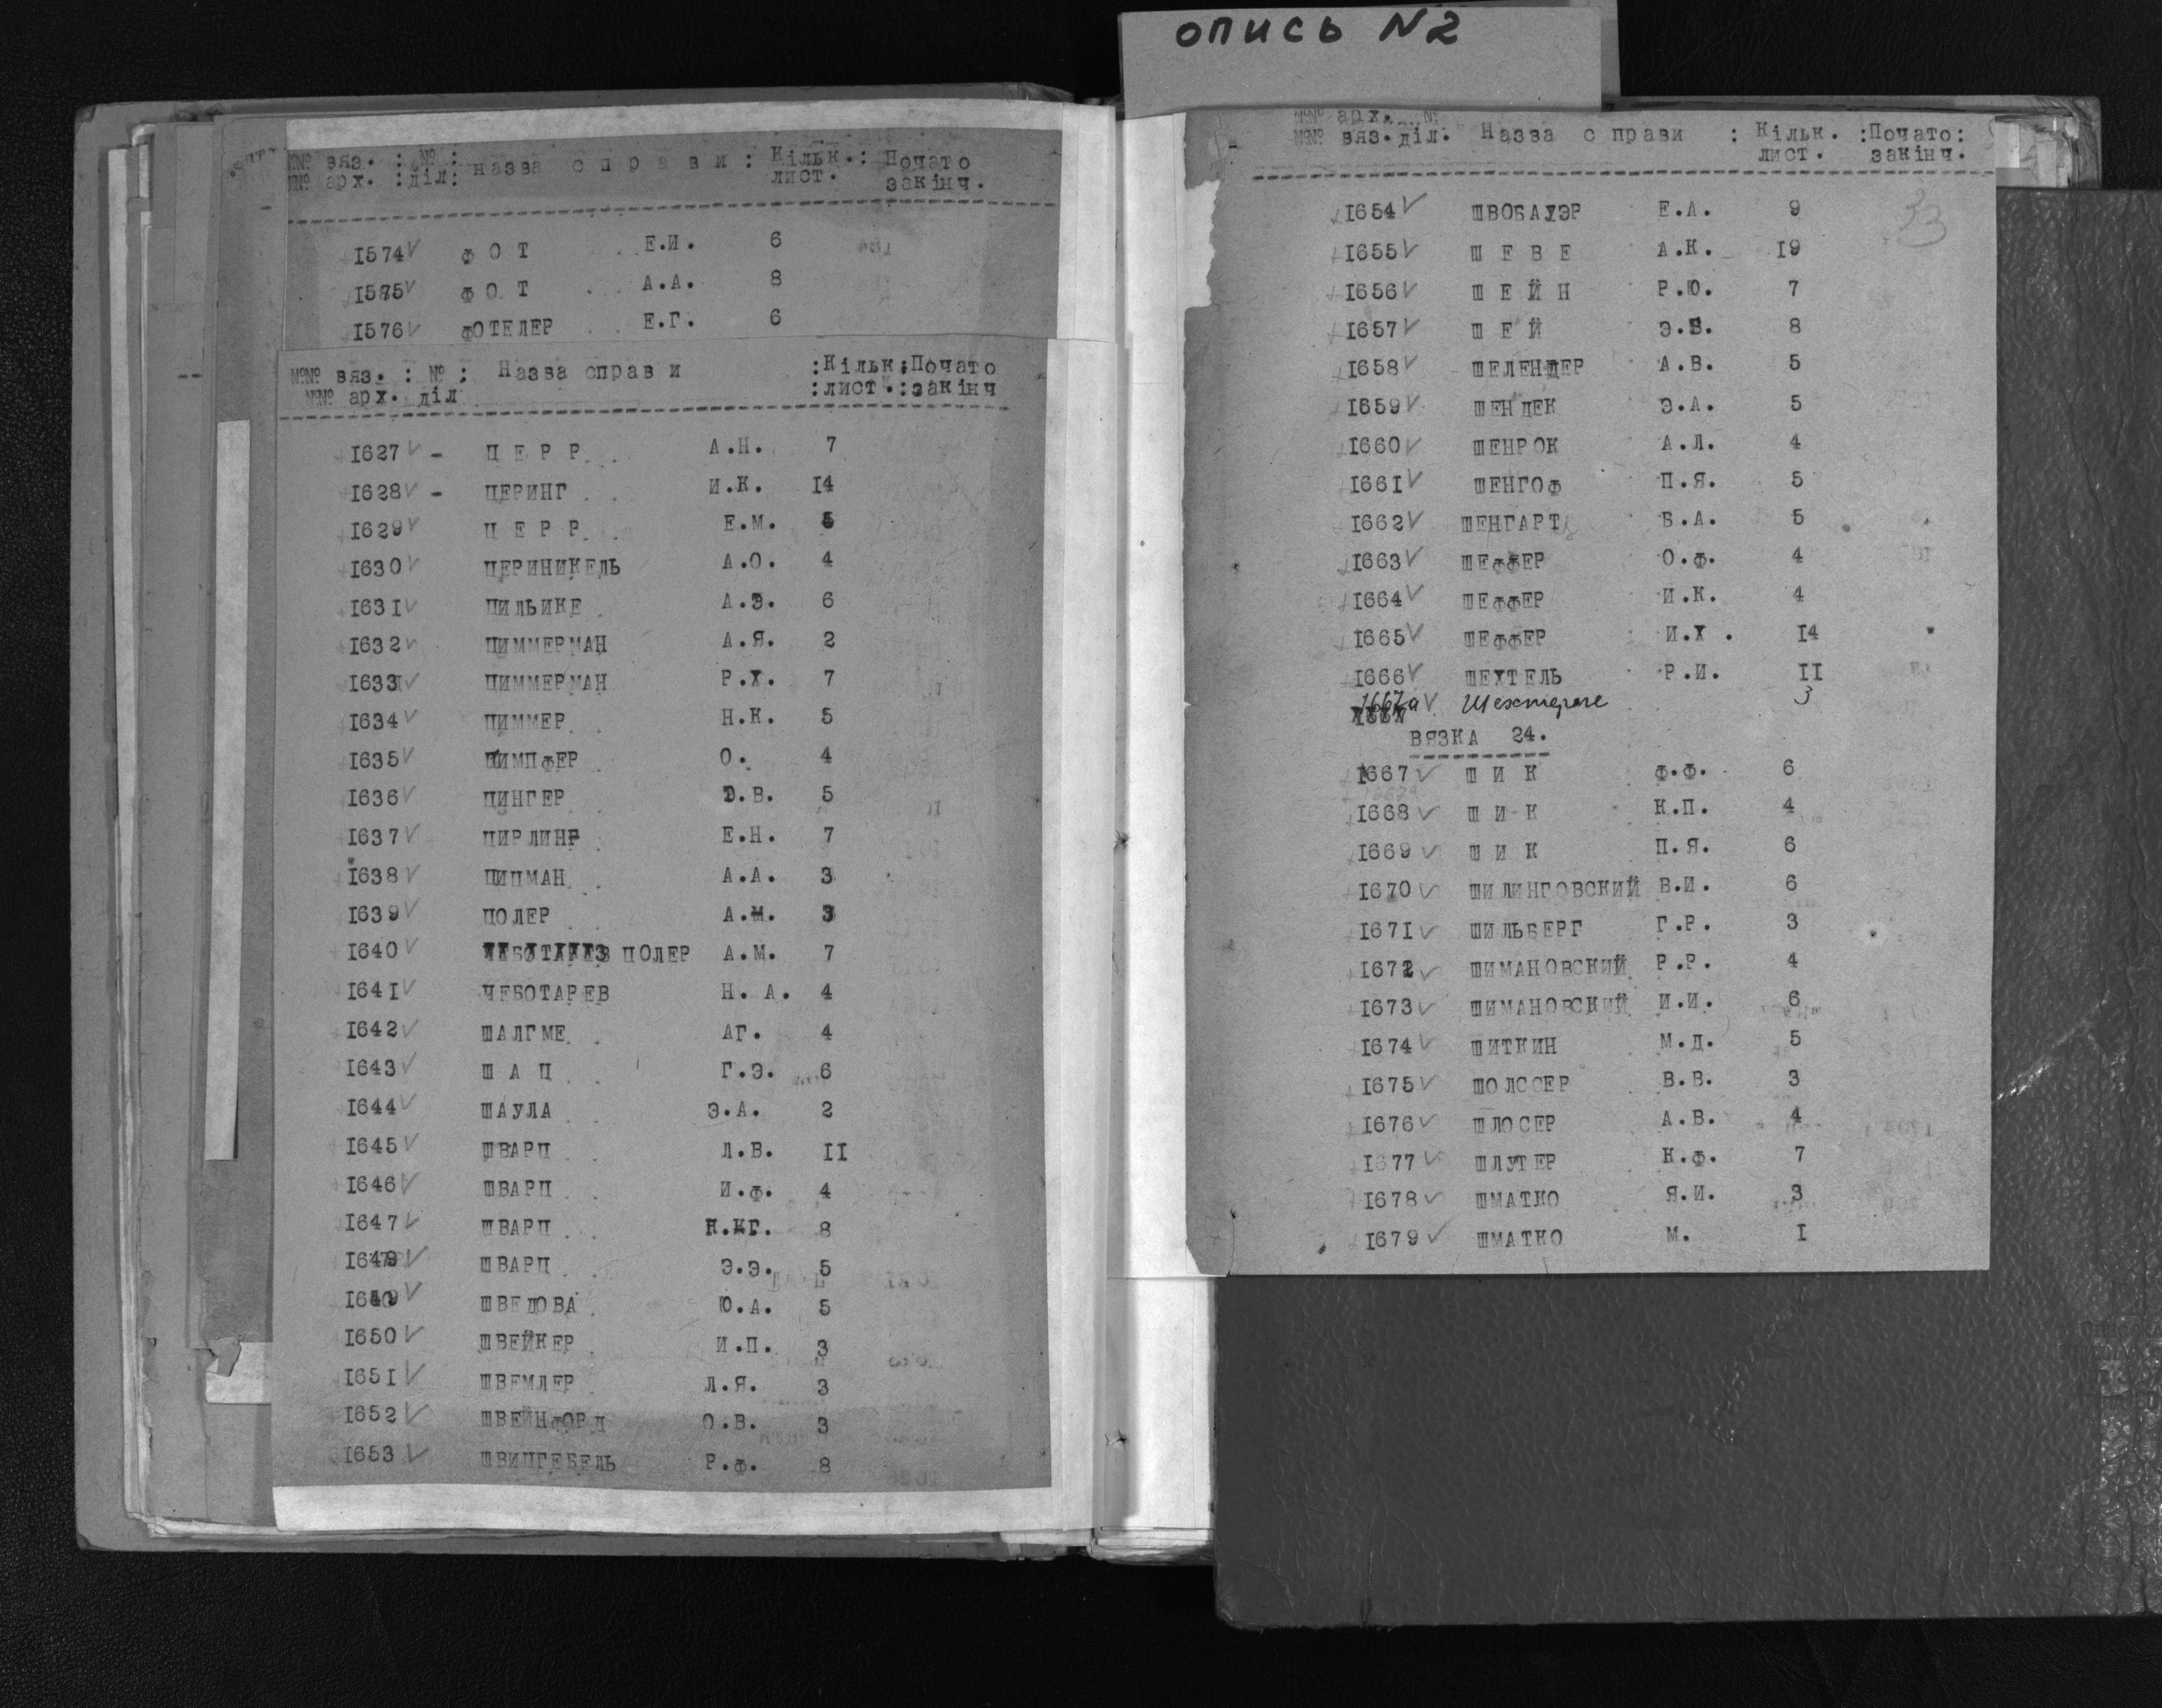 опись N2
№№ вяз. : № : Назва справи : Кільк. : Почато
№№ арх. : діл: лист. закінч.
1574 ФОТ Е.И. 6
1575 ФОТ А.А. 8
1576 ФОТЕЛЕР Е.Г. 6
№№ вяз. : № : Назва справи :Кільк:Почато
№№ арх. діл :лист.:закінч
1627 - ЦЕРР А.Н. 7
1628 - ЦЕРИНГ И.К. 14
1629 ЦЕРР Е.М. 5
1630 ЦЕРИНИКЕЛЬ А.О. 4
1631 ЦИЛЬИКЕ А.Э. 6
1632 ЦИММЕРМАН А.Я. 2
1633 ЦИММЕРМАН Р.Х. 7
1634 ЦИММЕР Н.К. 5
1635 ЦИМПФЕР О. 4
1636 ЦИНГЕР В. 5
1637 ЦИРЛИНГ Е.Н. 7
1638 ЦИПМАН А.А. 3
1639 ЦОЛЕР А.М. 3
1640 ЦОЛЕР А.М. 7
1641 ЧЕБОТАРЕВ Н. А. 4
1642 ШАЛГМЕ АГ. 4
1643 ШАЦ Г.Э. 6
1644 ШАУЛА Э.А. 2
1645 ШВАРЦ Л.В. II
1646 ШВАРЦ И.Ф. 4
1647 ШВАРЦ К. 8
1648 ШВАРЦ Э.Э. 5
1649 ШВЕДОВА Ю.А. 5
1650 ШВЕЙКЕР И.П. 3
1651 ШВЕМЛЕР Л.Я. 3
1652 ШВЕЙНФОРД О.В. 3
1653 ШВИЦГЕБЕЛЬ Р.Ф. 8
№№ арх. №
№№ вяз. діл. Назва справи : Кільк. :Почато:
лист. закінч.
33
1654 ШВОБАУЭР Е.А. 9
1655 ШЕВЕ А.К. 19
1656 ШЕЙН Р.Ю. 7
1657 ШЕЙ Э. 8
1658 ШЕЛЕНДЕР А.В. 5
1659 ШЕНДЕК Э.А. 5
1660 ШЕНРОК А.Л. 4
1661 ШЕНГОФ П.Я. 5
1662 ШЕНГАРТ Б.А. 5
1663 ШЕФФЕР О.Ф. 4
1664 ШЕФФЕР И.К. 4
1665 ШЕФФЕР И.Х . 14
1666 ШЕХТЕЛЬ Р.И. II
1667а 3
ВЯЗКА 24.
1667 ШИК Ф.Ф. 6
1668 ШИК К.П. 4
1669 ШИК П.Я. 6
1670 ШИЛИНГОВСКИЙ В.И. 6
1671 ШИЛЬБЕРГ Г.Р. 3
1672 ШИМАНОВСКИЙ Р.Р. 4
1673 ШИМАНОВСКИЙ И.И. 6
1674 ШИТКИН М.Д. 5
1675 ШОЛССЕР В.В. 3
1676 ШЛОСЕР А.В. 4
1677 ШЛУТЕР К.Ф. 7
1678 ШМАТКО Я.И. 3
1679 ШМАТКО М. I